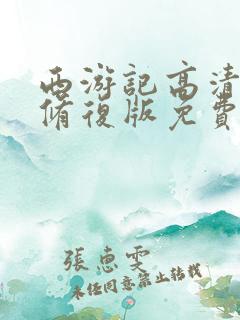 西游記高清
脩復版免費
張惠雯
未任同意禁止转载